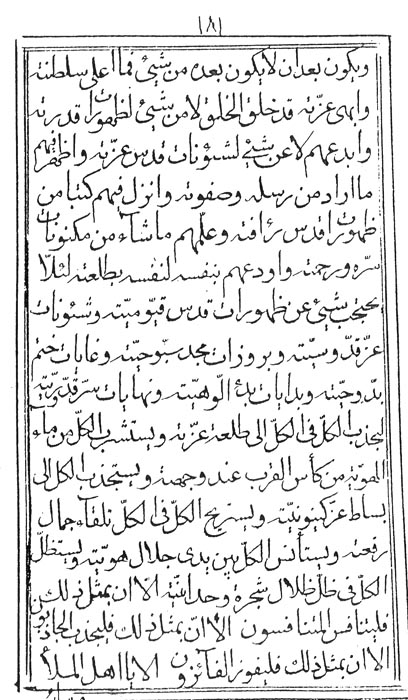 ١٨١
ويكون بعد ان لا يكون بعده من شيئ فما اعلى سلطنته
وابهى عزّته قد خلق الخلق لا من شيئ لظهورات قدرته
وابدعهم لا عن شيئ لشئونات قدس عزّته واظهر فيهم
ما اراد من رسله وصفوته وانزل فيهم كتبا من
ظهورات قدس رأفته وعلّمهم ما شاء من مكنونات
سرّه ورحمته واودعهم بنفسه لنفسه بطلعته لئلّا
يحتجب شيئ عن ظهورات قدس قيّوميّته وشئونات
عزّ قدّوسيّته وبروزات مجد سبّوحيّته وغايات ختم
بدّوحيّته وبدايات بدء الّوهيّته ونهايات سرّ قدّريّته
ليجذب الكلّ فى الكلّ الى طلعة عزّته ويستشرب الكلّ من ماء
الهويّة من كأس القرب عند وجهته ويستجذب الكلّ الى
بساط عزّ كينونيّته ويستريح الكلّ فى الكلّ تلقاء جمال
رفعته ويستأنس الكلّ بين يدى جلال هويّته ويستظلّ
الكلّ فى ظلّ ظلال شجرة وحدانيّته الا ان بمثل ذلك
فليتنافس المتنافسون الا انّ بمثل ذلك فليجذب الجاذبون
الا ان بمثل ذلك فليفوز الفائزون الا يا اهل الملأ